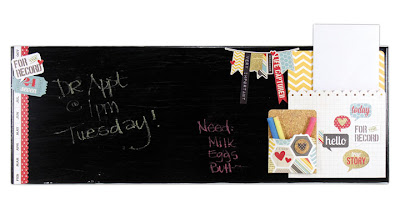 FOR the RECORD
Dr Appt
@ 1pm
Tuesday!
Need:
Milk
Eggs
Butt
LIFE CAPTURED
today
FOR the RECORD
hello
MY STORY